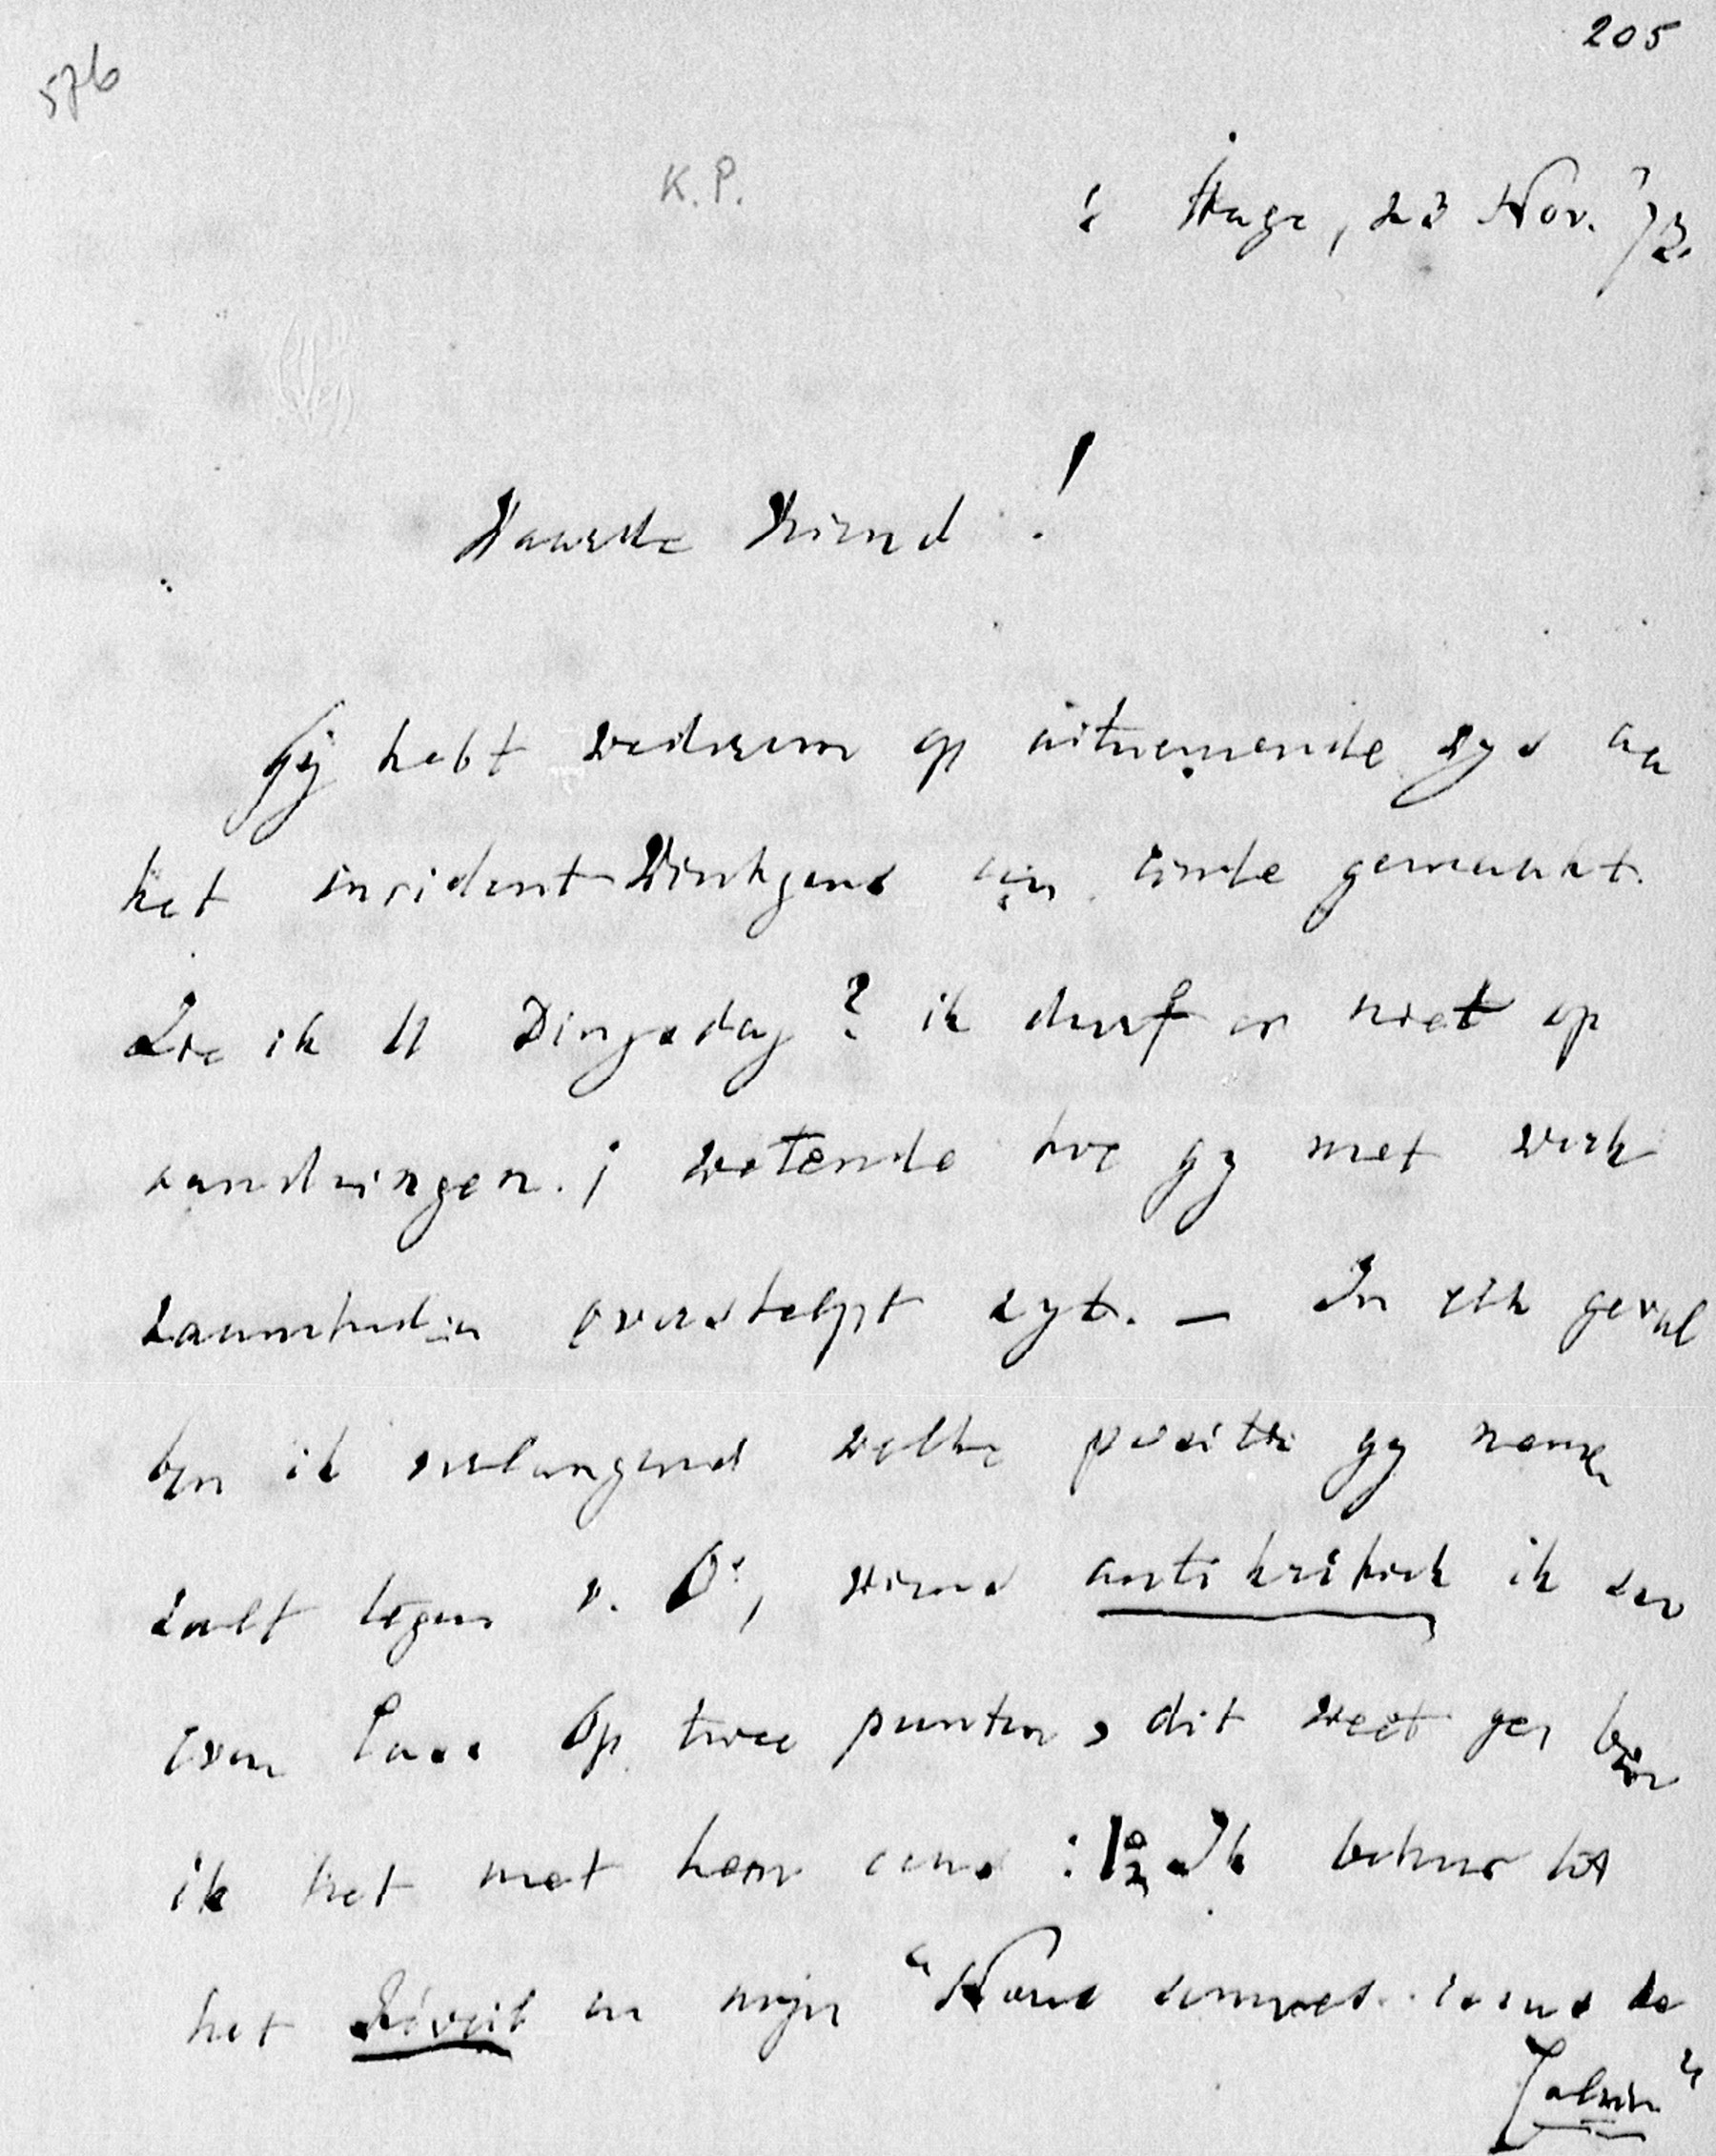 205
576
K.P.
's Hage, 23 Nov. '72.
Waarde Vriend!
Gij hebt wederom op uitnemende wys aan
het incident Wintgens een einde gemaakt.
Zie ik U Dingsdag? ik durf er niet op
aandringen; wetende hoe gy met werk
zaamheden overstelpt zyt. — In elk geval
ben ik verlangend welke positie gy nemen
zult tegen v. O., wiens antikritiek ik zoo
even las. Op twee punten, dit weet gy ben
ik het met hem eens: 1º Ik behoor tot
het Réveil en mijn "Nous sommes issus de
Calvin"